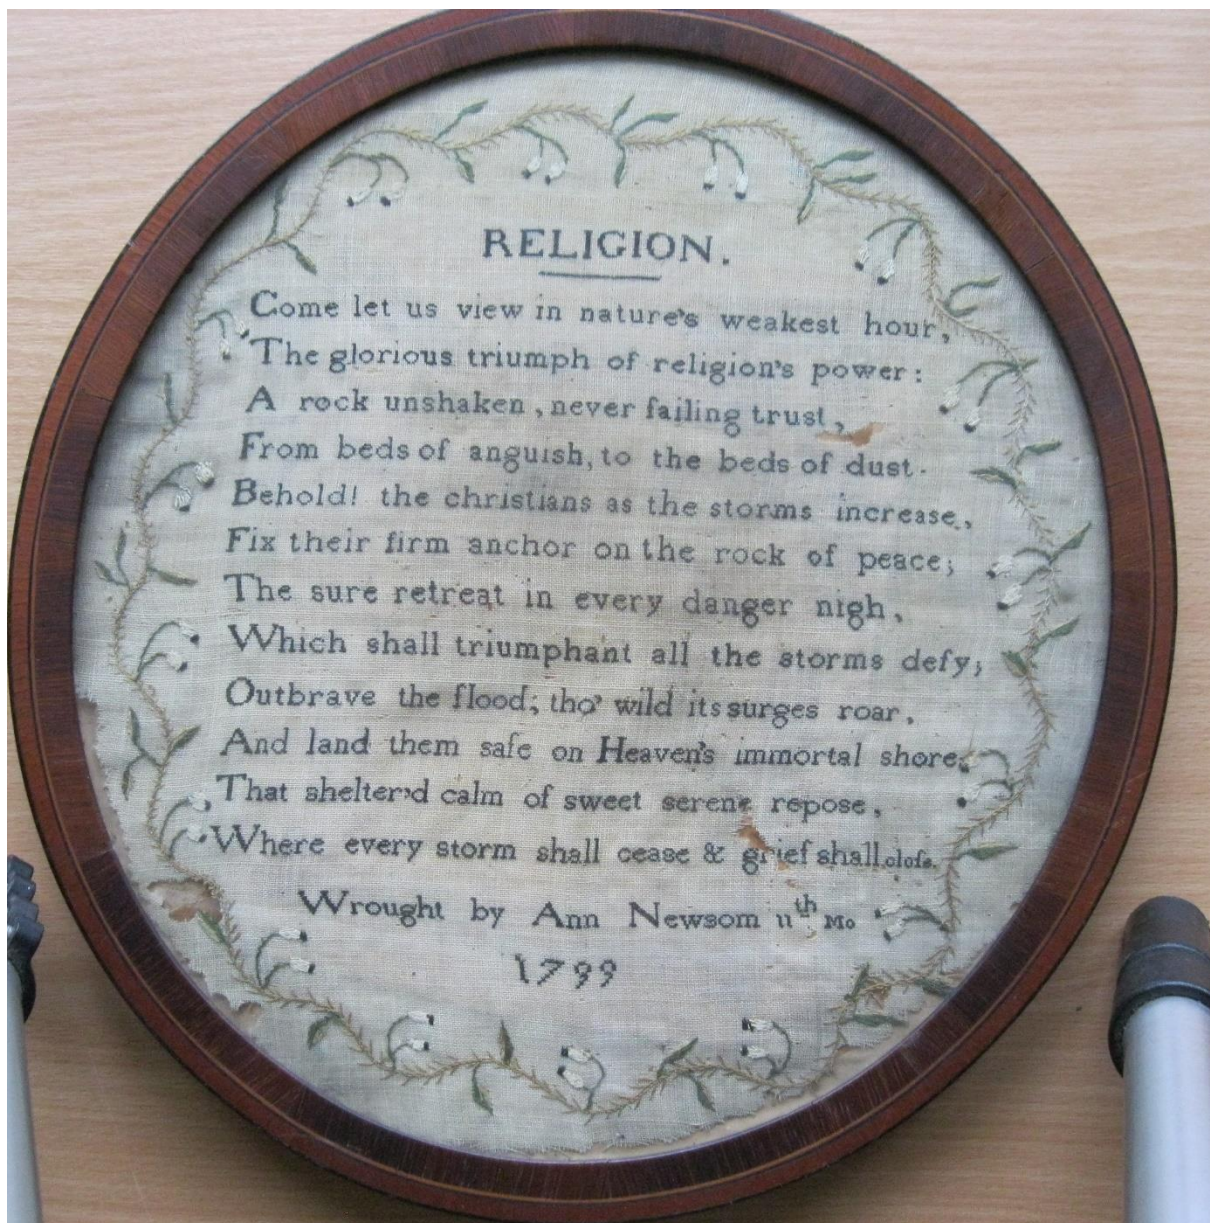 RELIGION.
Come let us view in nature's weakest hour,
The glorious triumph of religion's power:
A rock unshaken, never failing trust,
From beds of anguish, to the beds of dust.
Behold! the christians as the storms increase,
Fix their firm anchor on the rock of peace;
The sure retreat in every danger nigh,
Which shall triumphant all the storms defy;
Outbrave the flood; tho' wild its surges roar,
And land them safe on Heaven's immortal shore:
That shelter'd calm of sweet serene repose,
Where every storm shall cease & grief shall close.
Wrought by Ann Newsom 11th Mo
1799